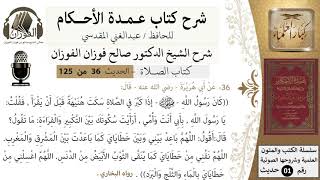 شرح كتاب عمدة الأحكام
للحافظ / عبدالغني المقدسي
شرح الشيخ الدكتور صالح فوزان الفوزان
كتاب الصلاة - الحديث 36 من 125
36- عَنْ أَبِي هُرَيْرَةَ - رضي الله عنه - قَالَ:
((كَانَ رَسُولُ اللَّهِ - ﷺ - إذَا كَبَّرَ فِي الصَّلَاةِ سَكَتَ هُنَيْهَةً قَبْلَ أَنْ يَقْرَأَ ، فَقُلْتُ:
يَا رَسُولَ اللَّهِ ، بِأَبِي أَنْتَ وَأُمِّي ، أَرَأَيْتَ سُكُوتَكَ بَيْنَ التَّكْبِيرِ وَالْقِرَاءَةِ: مَا تَقُولُ؟
قَالَ: أَقُولُ: اللَّهُمَّ بَاعِدْ بَيْنِي وَبَيْنَ خَطَايَايَ كَمَا بَاعَدْتَ بَيْنَ الْمَشْرِقِ وَالْمَغْرِبِ.
اللَّهُمَّ نَقِّنِي مِنْ خَطَايَايَ كَمَا يُنَقَّى الثَّوْبُ الأَبْيَضُ مِنْ الدَّنَسِ. اللَّهُمَّ اغْسِلْنِي مِنْ
خَطَايَايَ بِالْمَاءِ وَالثَّلْجِ وَالْبَرَدِ)). رواه البخاري.
الفوزان
كبار العلماء
سلسلة الكتب والمتون
العلمية وشروحها الصوتية
رقم 01 حديث